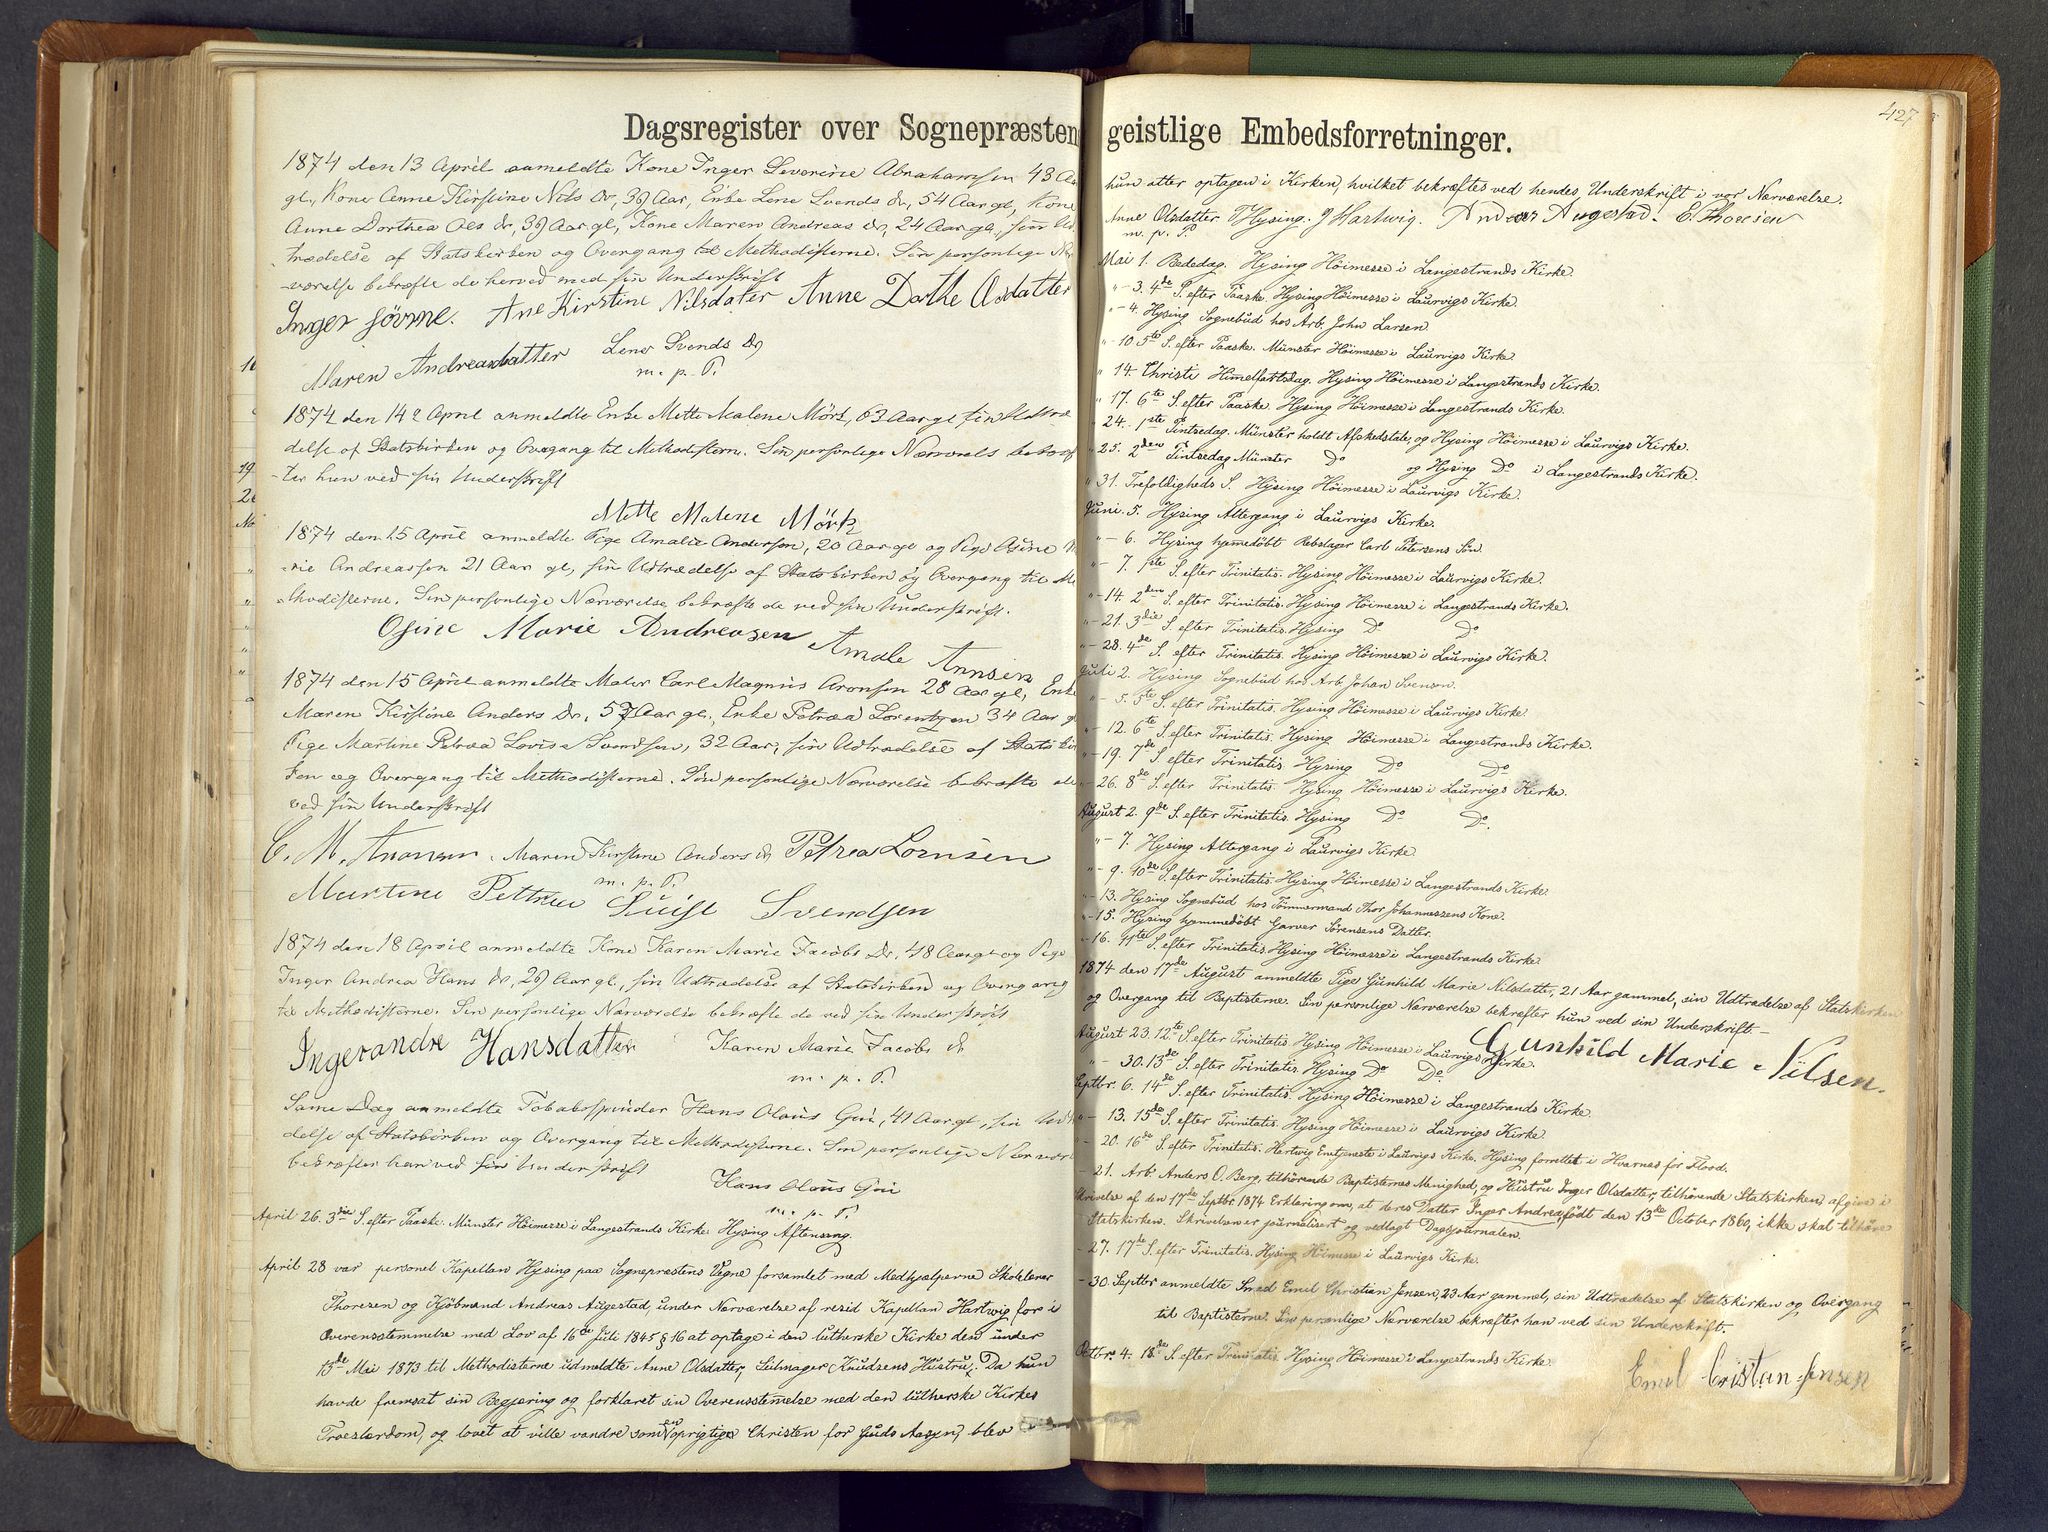 Dagsregister over Sognepræstens
1874 den 13 April anmeldte Kone Inger Severine Abrahamsen 43 Aar
gl, Kone Anne Kirstine Nils Dr, 39 Aar, Enke Lene Svends dr, 54 Aar gl, Kone
Anne Dorthea Ols dr, 39 Aar gl, Kone Maren Andreas dr, 24 Aar gl, sin Ud
trædelse af Statskirken og Overgang til Methodisterne. Sin personlige Nær
værelse bekræfte de herved med sin Underskrift
Inger Sövrne. Ane Kirstine Nilsdater Anne Dathe Olsdatter
Maren Andreasdatter Lene Svends Dr
m. p. P.
1874 den 14de April anmeldte Enke Mette Malene Mörk, 63 Aar gl sin Udtræ
delse af Statskirken og Overgang til Methodisterne. Sin personlige Nærværels bekræf
ter hun ved sin Underskrift
Mette Malene Mörk
1874 den 15 April anmeldte Pige Amalie Andersen, 20 Aar gl og Pige Osine Ma
rie Andreassen 21 Aar gl, sin Udtrædelse af Statskirken og Overgang til Me
thodisterne. Sin personlige Nærværelse bekræfte de ved sin Underskrift.
Osine Marie Andreasen Amale Annsen
1874 den 15 April anmeldte Maler Carl Magnus Aronsen 28 Aar gl, Enke
Maren Kirstine Anders Dr, 57 Aar gl, Enke Petrea Lorentzen 34 Aar gl
Pige Martine Petrea Lovise Svendsen, 32 Aar, sin Udtrædelse af Statskir
ken og Overgang til Methodisterne. Sin personlige Nærværelse bekræfte de
ved sin Underskrift
C. M. Aronsen. Maren Kirstine Anders dr Petrea Lornsen
m. p. P.
Martine Pettrea Luise Svendsen
1874 den 18 April anmeldte Kone Karen Marie Jacobs Dr, 48 Aar gl og Pige
Inger Andrea Hans dr, 29 Aar gl, sin Udtrædelse af Statskirken og Overgang
til Methodisterne. Sin personlige Nærværelse bekræfte de ved sin Underskrift
Ingerandre Hansdatter Karen Marie Jacobs dr
m. p. P.
Same Dag anmeldte Tobaksspinder Hans Olaus Gui, 41 Aar gl, sin Udtræ
delse af Statskirken og Overgang til Methodisterne. Sin personlige Nærvær
bekræfter han ved sin Underskrift
Hans Olaus Gui
m. p. P.
April 26. 3die S. efter Paaske. Münster Höimesse i Langestrands Kirke. Hysing Aftensang.
April 28 var personel Kapellan Hysing paa Sognepræstens Vegne forsamlet med Medhjælperne Skolelærer
Thoresen og Kjöbmand Andreas Augestad, under Nærværelse af resid Kapellan Hartwig for i
Overensstemmelse med Lov af 16de Juli 1845 § 16 at optage i den lutherske Kirke den under
15de Mai 1873 til Methodisterne udmeldte Anne Olsdatter, Seilmager Knudsens Hustru. Da hun
havde fremsat sin Begjæring og forklaret sin Overensstemelse med den lutherske Kirkes
Troeslærdom, og lovet at ville vandre som en oprigtig Christen for Guds Aasyn, blev
427
geistlige Embedsforretninger.
hun atter optagen i Kirken, hvilket bekræftes ved hendes Underskrift i vor Nærværelse.
Anne Olsdatter THysing. J Hartwig. Andreas Augestad. C. Thoresen
m. p. P.
Mai 1. Bededag. Hysing Höimesse i Langestrands Kirke.
" - 3. 4de S. efter Paaske. Hysing Höimesse i Laurvigs Kirke.
" - 4. Hysing Sognebud hos Arb. John Larsen.
" 10 5te S. efter Paaske. Münster Höimesse i Laurvigs Kirke.
" 14. Christi Himmelfartsdag. Hysing Höimesse i Langestrands Kirke.
" 17. 6te S. efter Paaske. Hysing Höimesse i Langestrands Kirke.
" 24. 1ste Pintsedag. Münster holdt Afskedstale, og Hysing Höimesse i Laurvigs Kirke.
" 25. 2den Pintsedag Münster Do og Hysing Do i Langestrands Kirke.
" 31. Trefoldigheds S. Hysing Höimesse i Laurvigs Kirke.
Juni. 5. Hysing Altergang i Laurvigs Kirke.
" - 6. Hysing hjemmedöbt Rebslager Carl Petersens Sön.
" - 7. 1ste S. efter Trinitatis. Hysing Höimesse i Laurvigs Kirke.
" - 14. 2den S. efter Trinitatis. Hysing Höimesse i Langestrands Kirke.
" - 21. 3die S. efter Trinitatis. Hysing Do Do
" - 28. 4de S. efter Trinitatis. Hysing Höimesse i Laurvigs Kirke.
Juli 2. Hysing Sognebud hos Arb. Johan Svensen.
" - 5. 5te S. efter Trinitatis. Hysing Höimesse i Laurvigs Kirke.
" - 12. 6te S. efter Trinitatis. Hysing Höimesse i Langestrands Kirke.
" - 19. 7de S efter Trinitatis. Hysing Do Do
" - 26. 8de S. efter Trinitatis. Hysing Höimesse i Laurvigs Kirke.
August 2. 9de S. efter Trinitatis. Hysing Do Do.
" - 7. Hysing Altergang i Laurvigs Kirke.
" - 9. 10de S. efter Trinitatis. Hysing Höimesse i Langestrands Kirke.
" - 13. Hysing Sognebud hos Tömmermand Thor Johannessens Kone.
" - 15. Hysing hjemmedöbt Garver Sörensens Datter.
- 16. 11te S. efter Trinitatis. Hysing Höimesse i Langestrands Kirke.
1874 den 17de August anmeldte Pige Gunhild Marie Nilsdatter, 21 Aar gammel, sin Udtrædelse af Statskirken
og Overgang til Baptisterne. Sin personlige Nærværelse bekræfter hun ved sin Underskrift. -
Gunhild Marie Nilsen.
August 23. 12te S. efter Trinitatis. Hysing Höimesse i Laurvigs Kirke.
" - 30. 13de S. efter Trinitatis. Hysing Do Do.
Septbr. 6. 14de S. efter Trinitatis. Hysing Höimesse i Langestrands Kirke.
" - 13. 15de S. efter Trinitatis. Hysing Höimesse i Laurvigs Kirke.
- 20. 16de S. efter Trinitatis. Hartwig Emtjeneste i Laurvigs Kirke. Hysing forrettet i Hvarnæs for Flood.
- 21. Arb. Anders O. Berg, tilhörende Baptisternes Menighed, og Hustru Inger Olsdatter, tilhörende Statskirken, afgive i
Skrivelse af den 17de Septbr. 1874 Erklæring om, at deres Datter Inger Andrea, födt den 13de October 1860, ikke skal tilhöre
Statskirken. Skrivelsen er journaliseret og vedlagt Dagsjournalen.
- 27. 17de S. efter Trinitatis. Hysing Höimesse i Laurvigs Kirke.
- 30. Septbr anmeldte Smed Emil Christian Jensen, 23 Aar gammel, sin Udtrædelse af Statskirken og Overgang
til Baptisterne. Sin personlige Nærværelse bekræfter han ved sin Underskrift.
Emil Cristan Jensen
Octbr. 4. 18de S. efter Trinitatis. Hysing Höimesse i Langestrands Kirke.